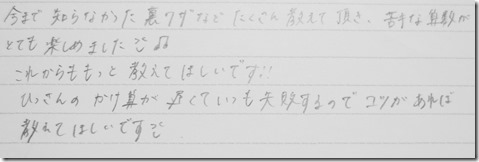 今まで知らなかった裏ワザなどたくさん教えて頂き、苦手な算数が
とても楽しめました
これからももっと教えてほしいです!!
ひっさんのかけ算が遅くていつも失敗するのでコツがあれば
教えてほしいです